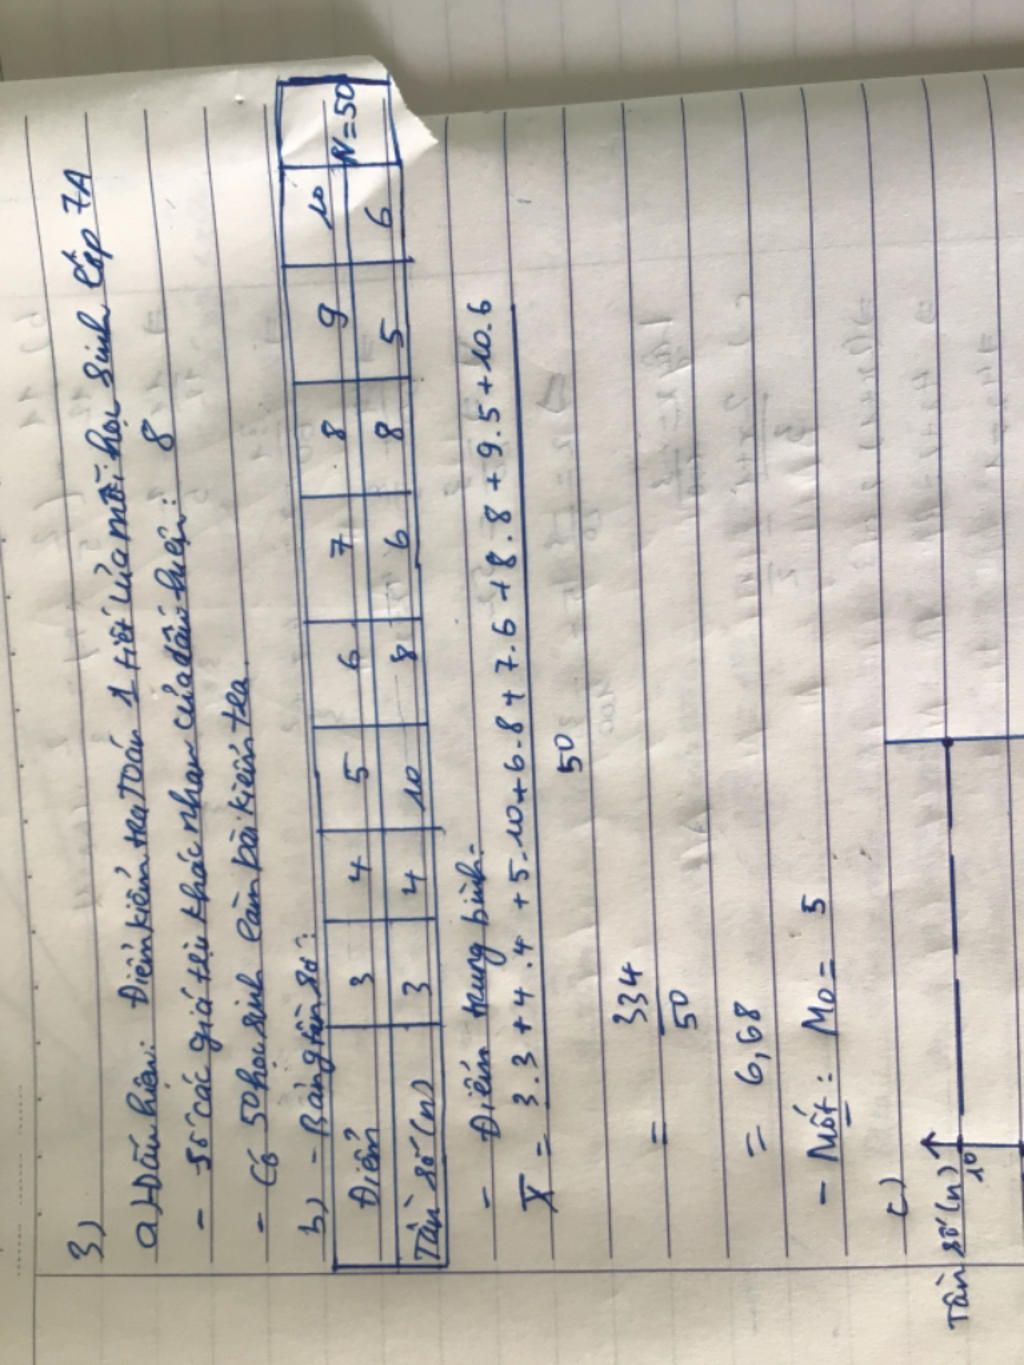 3)
a) Dấu hiệu: Điểm kiểm tra Toán 1 tiết của mỗi học sinh lớp 7A
- Số các giá trị khác nhau của dấu hiệu: 8
- Có 50 học sinh làm bài kiểm tra.
b) - Bảng tần số:
Điểm 3 4 5 6 7 8 9 10
Tần số (n) 3 4 10 8 6 8 5 6 N=50
- Điểm trung bình:
X̄ = 3.3 + 4.4 + 5.10 + 6.8 + 7.6 + 8.8 + 9.5 + 10.6
50
= 334
50
= 6,68
- Mốt: Mo = 5
c)
Tần số (n)
10